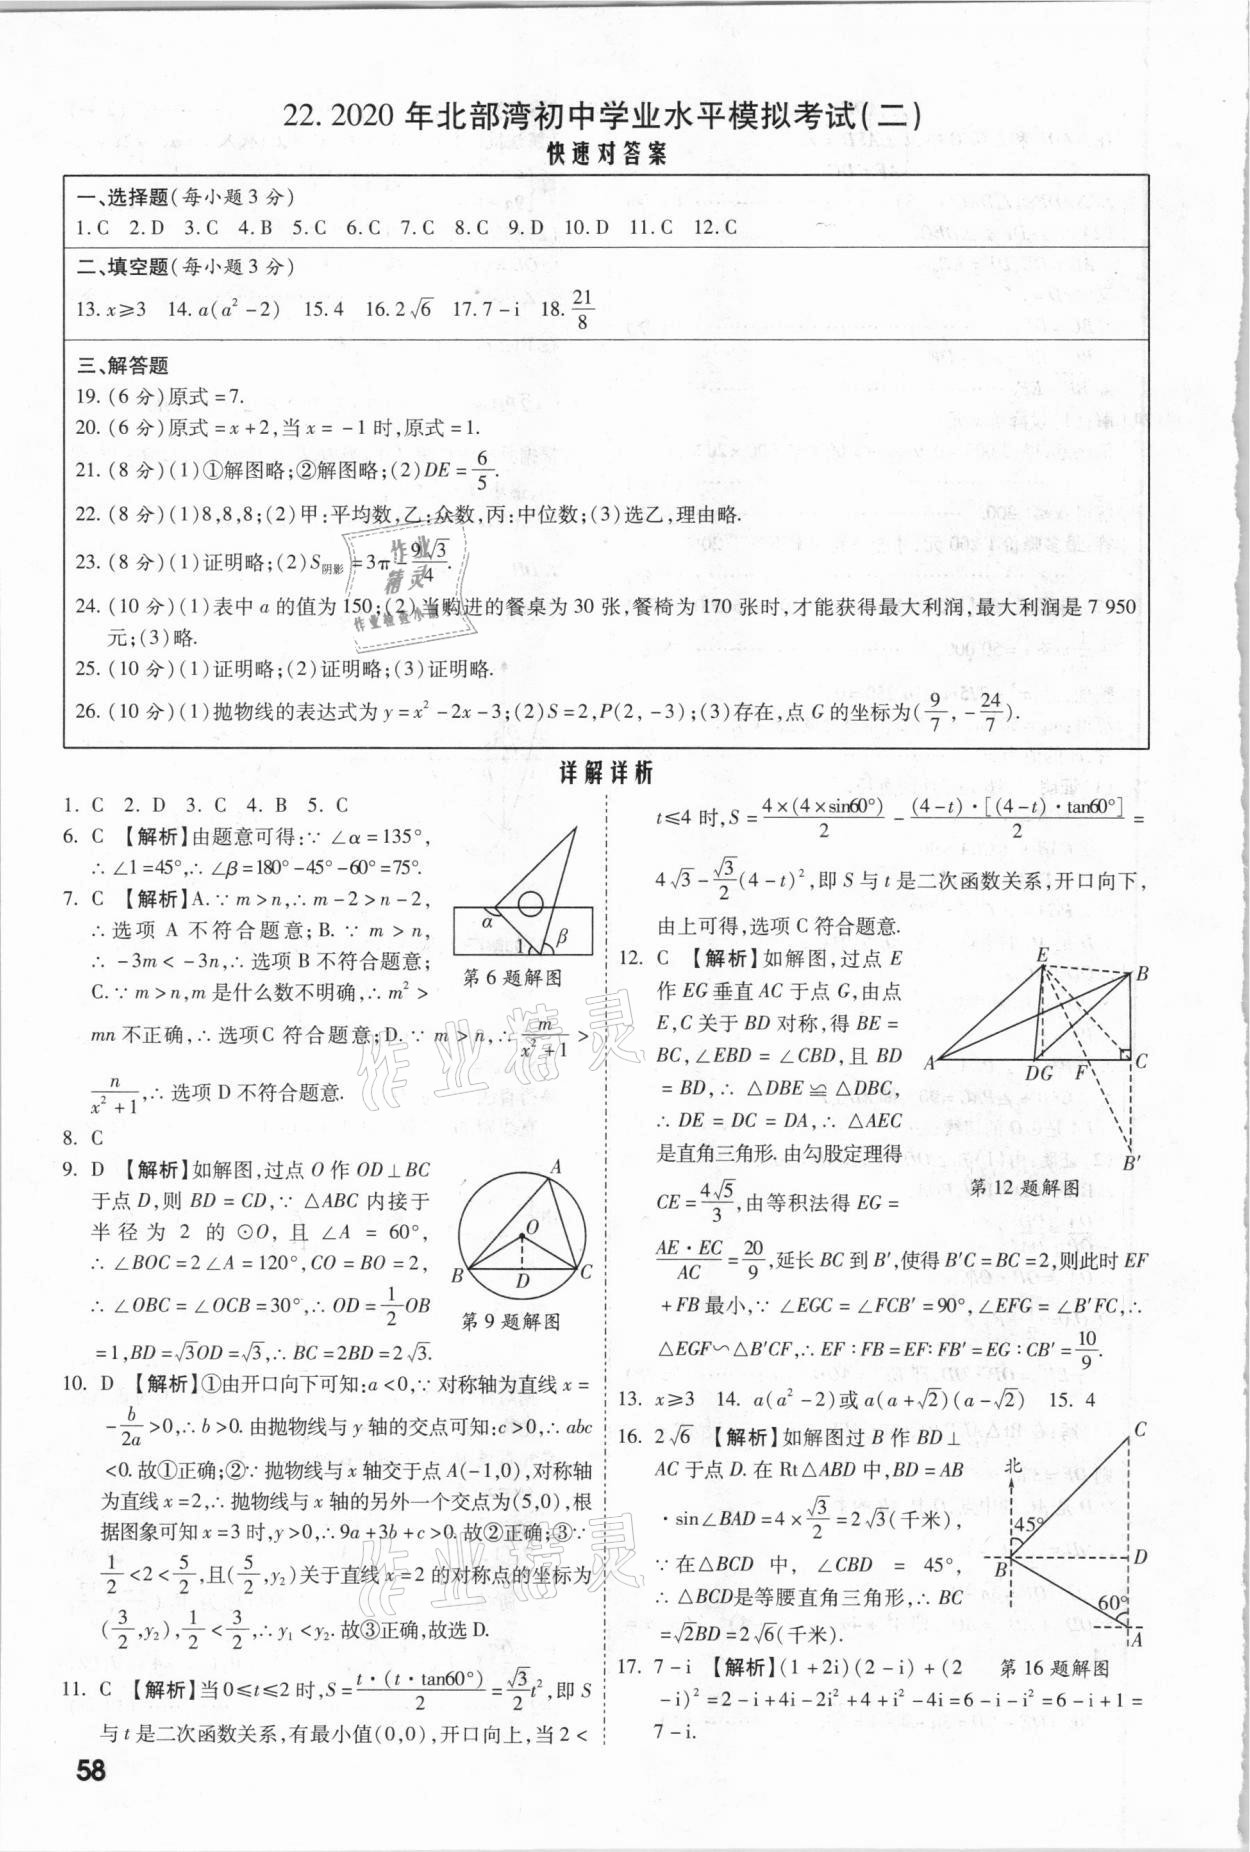 22. 2020 年北部湾初中学业水平模拟考试(二)
快速对答案
一、选择题(每小题3分)
1. C 2. D 3. C 4. B 5. C 6. C 7. C 8. C 9. D 10. D 11. C 12. C
二、填空题(每小题3分)
13. x≥3 14. a(a²-2) 15. 4 16. 2√6 17. 7-i 18. 21/8
三、解答题
19. (6分)原式=7.
20. (6分)原式=x+2,当x=-1时,原式=1.
21. (8分)(1)①解图略;②解图略;(2)DE=6/5.
22. (8分)(1)8,8,8;(2)甲:平均数,乙:众数,丙:中位数;(3)选乙,理由略.
23. (8分)(1)证明略;(2)S阴影=3π-9√3/4.
24. (10分)(1)表中a的值为150;(2)当购进的餐桌为30张,餐椅为170张时,才能获得最大利润,最大利润是7 950
元;(3)略.
25. (10分)(1)证明略;(2)证明略;(3)证明略.
26. (10分)(1)抛物线的表达式为y=x²-2x-3;(2)S=2,P(2,-3);(3)存在,点G的坐标为(9/7,-24/7).
详解详析
1. C 2. D 3. C 4. B 5. C
6. C 【解析】由题意可得:∵∠α=135°,
∴∠1=45°,∴∠β=180°-45°-60°=75°.
7. C 【解析】A.∵m>n,∴m-2>n-2,
∴选项A不符合题意;B.∵m>n,
∴-3m<-3n,∴选项B不符合题意;
C.∵m>n,m是什么数不明确,∴m²>
mn不正确,∴选项C符合题意;D.∵m>n,∴m/(x²+1)>
n/(x²+1),∴选项D不符合题意.
α
1
β
第6题解图
8. C
9. D 【解析】如解图,过点O作OD⊥BC
于点D,则BD=CD,∵△ABC内接于
半径为2的⊙O,且∠A=60°,
∴∠BOC=2∠A=120°,CO=BO=2,
∴∠OBC=∠OCB=30°,∴OD=1/2OB
=1,BD=√3OD=√3,∴BC=2BD=2√3.
A
O
B D C
第9题解图
10. D 【解析】①由开口向下可知:a<0,∵对称轴为直线x=
-b/2a>0,∴b>0.由抛物线与y轴的交点可知:c>0,∴abc
<0.故①正确;②∵抛物线与x轴交于点A(-1,0),对称轴
为直线x=2,∴抛物线与x轴的另外一个交点为(5,0),根
据图象可知x=3时,y>0,∴9a+3b+c>0.故②正确;③∵
1/2<2<5/2,且(5/2,y₂)关于直线x=2的对称点的坐标为
(3/2,y₂),1/2<3/2,∴y₁<y₂.故③正确,故选D.
11. C 【解析】当0≤t≤2时,S=t·(t·tan60°)/2=√3/2t²,即S
与t是二次函数关系,有最小值(0,0),开口向上,当2<
58
t≤4时,S=4×(4×sin60°)/2-(4-t)·[(4-t)·tan60°]/2=
4√3-√3/2(4-t)²,即S与t是二次函数关系,开口向下,
由上可得,选项C符合题意.
12. C 【解析】如解图,过点E
作EG垂直AC于点G,由点
E,C关于BD对称,得BE=
BC,∠EBD=∠CBD,且BD
=BD,∴△DBE≌△DBC,
∴DE=DC=DA,∴△AEC
是直角三角形.由勾股定理得
CE=4√5/3,由等积法得EG=
AE·EC/AC=20/9,延长BC到B′,使得B′C=BC=2,则此时EF
+FB最小,∵∠EGC=∠FCB′=90°,∠EFG=∠B′FC,∴
△EGF∽△B′CF,∴EF∶FB=EF∶FB′=EG∶CB′=10/9.
E B
A DG F C
B′
第12题解图
13. x≥3 14. a(a²-2)或a(a+√2)(a-√2) 15. 4
16. 2√6 【解析】如解图过B作BD⊥
AC于点D.在Rt△ABD中,BD=AB
·sin∠BAD=4×√3/2=2√3(千米),
∵在△BCD中,∠CBD=45°,
∴△BCD是等腰直角三角形,∴BC
=√2BD=2√6(千米).
C
北
45°
B D
60°
A
第16题解图
17. 7-i 【解析】(1+2i)(2-i)+(2
-i)²=2-i+4i-2i²+4+i²-4i=6-i-i²=6-i+1=
7-i.
作业
精灵
作业检查小
作业精灵
作业精灵